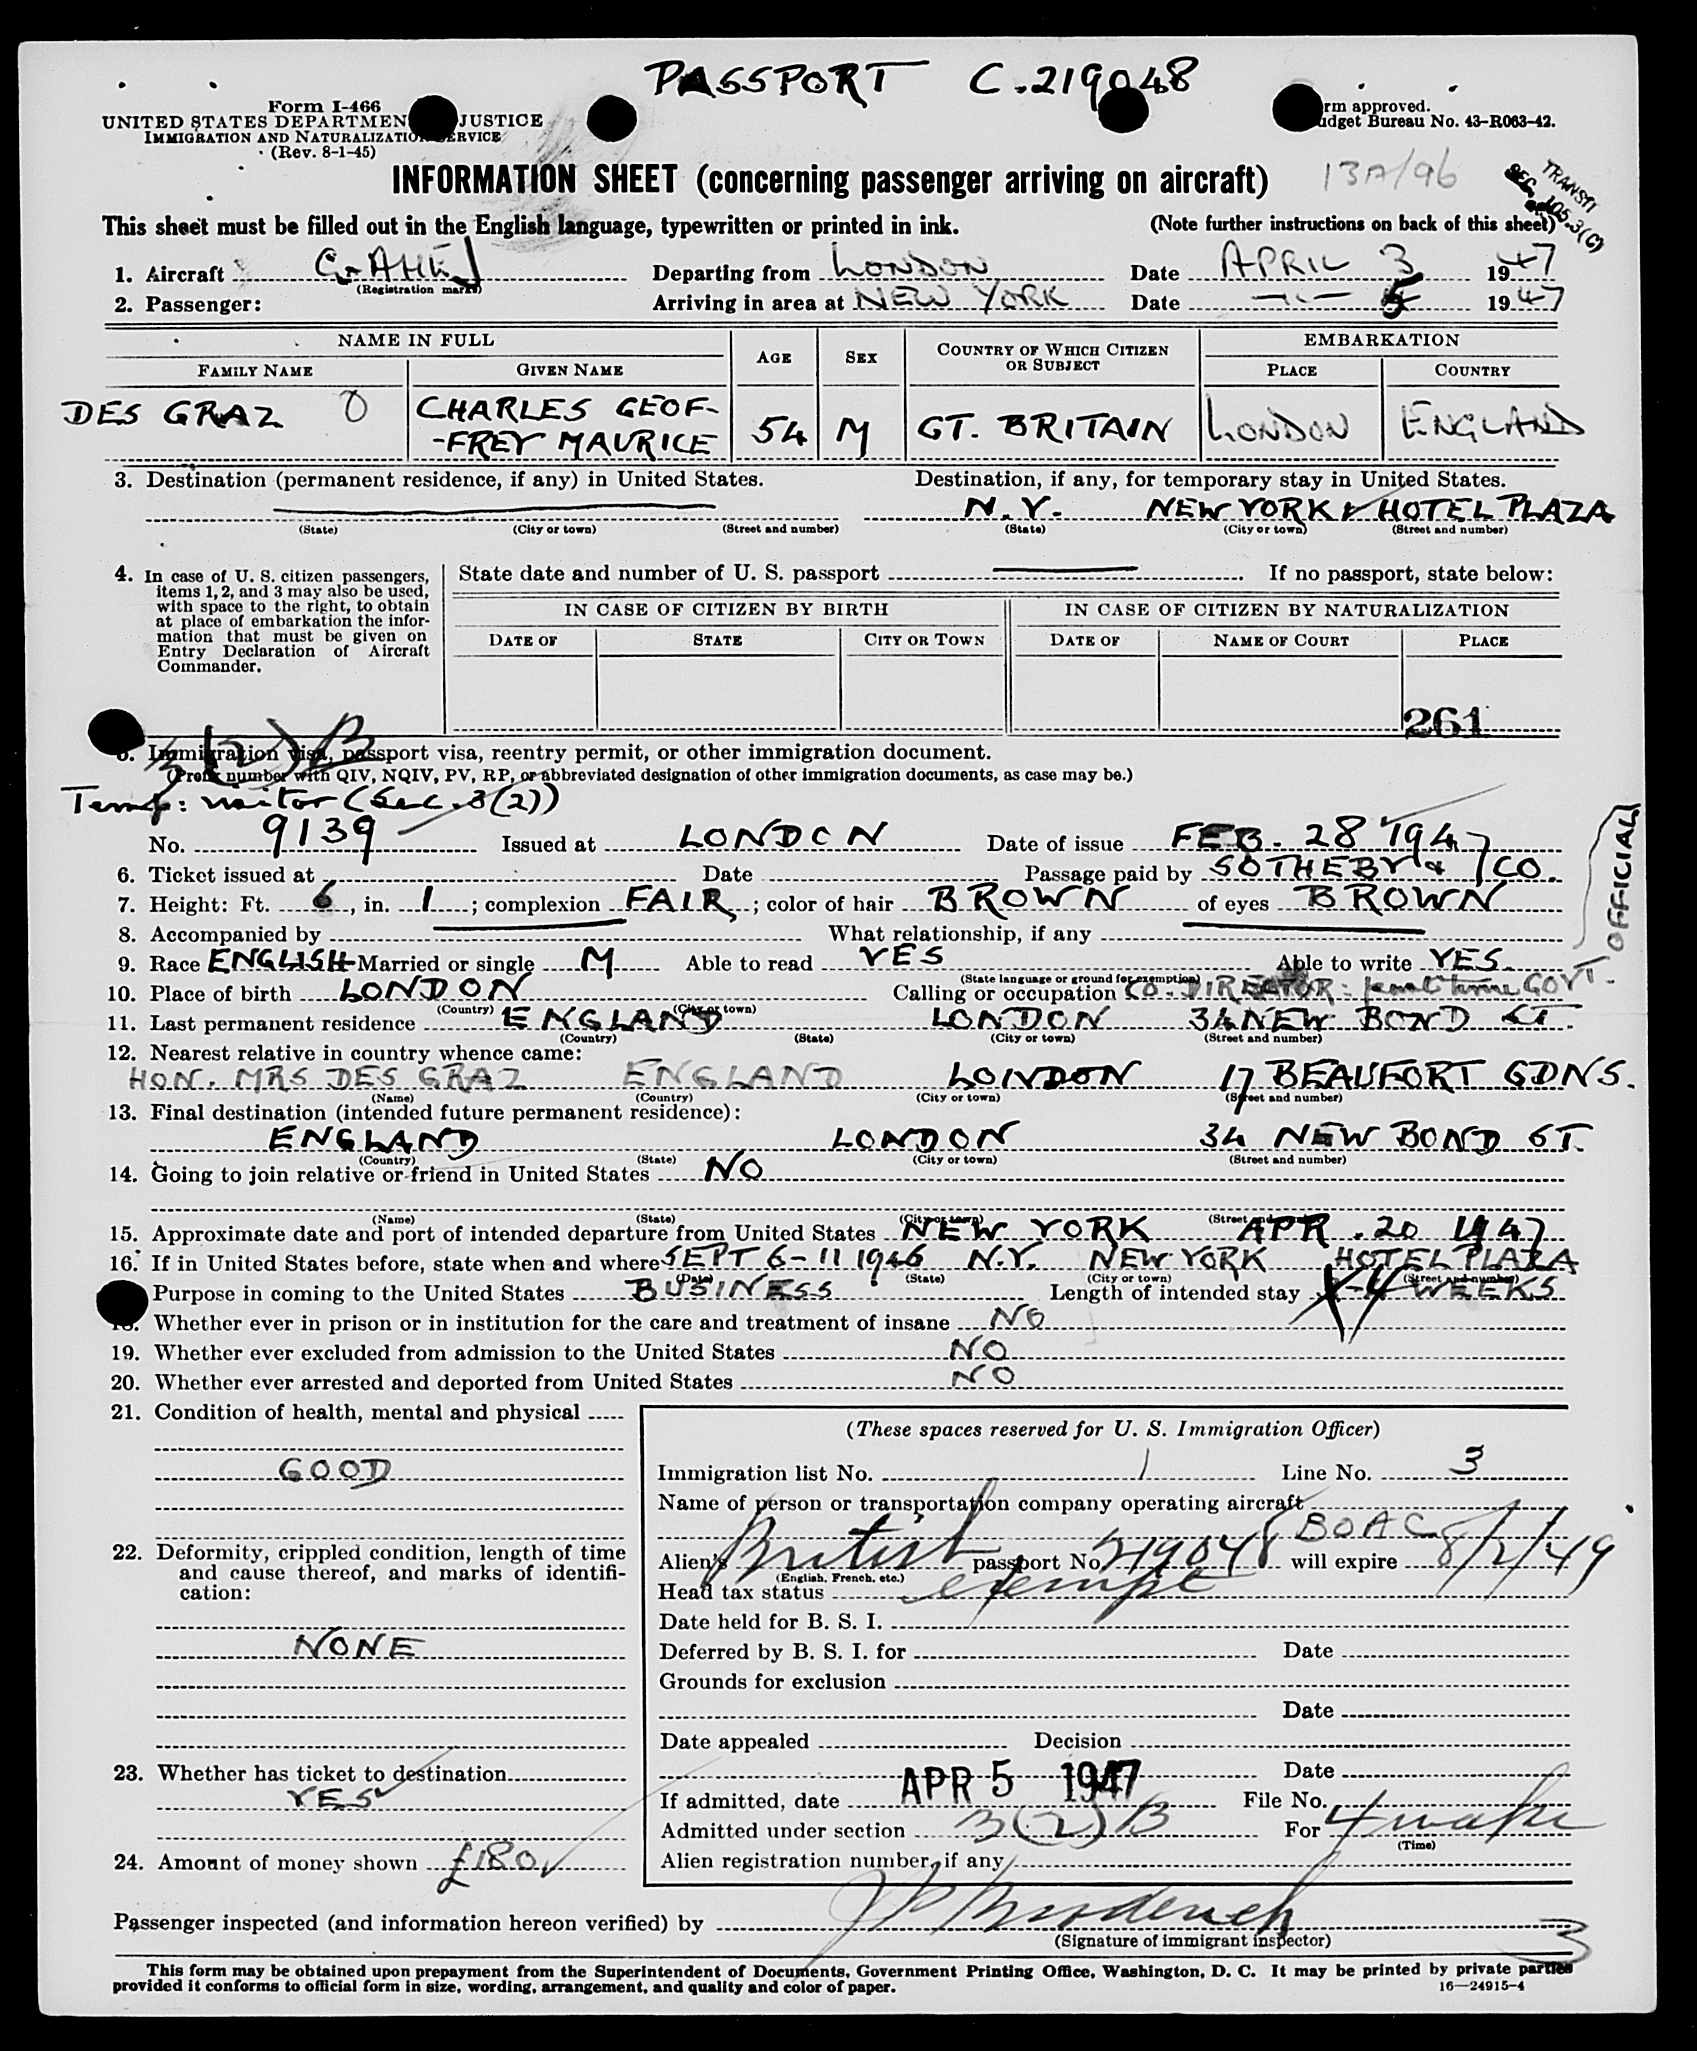 PASSPORT C.219048
Form I-466
UNITED STATES DEPARTMEN JUSTICE
IMMIGRATION AND NATURALIZATION SERVICE
(Rev. 8-1-45)
rm approved.
udget Bureau No. 43-R063-42.
INFORMATION SHEET (concerning passenger arriving on aircraft)
13A/96
TRANSIT
SEC. 105.3(C)
This sheet must be filled out in the English language, typewritten or printed in ink.
(Note further instructions on back of this sheet)
1. Aircraft G-AHEJ Departing from LONDON Date APRIL 3 1947
(Registration marks)
2. Passenger: Arriving in area at NEW YORK Date —"— 5 1947
NAME IN FULL AGE SEX COUNTRY OF WHICH CITIZEN OR SUBJECT EMBARKATION
FAMILY NAME GIVEN NAME PLACE COUNTRY
DES GRAZ CHARLES GEOF-
-FREY MAURICE 54 M GT. BRITAIN LONDON ENGLAND
3. Destination (permanent residence, if any) in United States. Destination, if any, for temporary stay in United States.
N.Y. NEW YORK HOTEL PLAZA
(State) (City or town) (Street and number) (State) (City or town) (Street and number)
4. In case of U. S. citizen passengers,
items 1, 2, and 3 may also be used,
with space to the right, to obtain
at place of embarkation the infor-
mation that must be given on
Entry Declaration of Aircraft
Commander.
State date and number of U. S. passport If no passport, state below:
IN CASE OF CITIZEN BY BIRTH IN CASE OF CITIZEN BY NATURALIZATION
DATE OF STATE CITY OR TOWN DATE OF NAME OF COURT PLACE
261
3(2)B
5. Immigration visa, passport visa, reentry permit, or other immigration document.
(Prefix number with QIV, NQIV, PV, RP, or abbreviated designation of other immigration documents, as case may be.)
Temp: visitor (Sec. 3(2))
No. 9139 Issued at LONDON Date of issue FEB. 28 1947
6. Ticket issued at Date Passage paid by SOTHEBY & CO.
7. Height: Ft. 6, in. 1; complexion FAIR; color of hair BROWN of eyes BROWN
8. Accompanied by What relationship, if any
9. Race ENGLISH Married or single M Able to read YES Able to write YES.
(State language or ground for exemption)
10. Place of birth LONDON Calling or occupation CO. DIRECTOR: part time GOVT. OFFICIAL
(Country) (City or town)
11. Last permanent residence ENGLAND LONDON 34 NEW BOND ST.
(Country) (State) (City or town) (Street and number)
12. Nearest relative in country whence came:
HON. MRS DES GRAZ ENGLAND LONDON 17 BEAUFORT GDNS.
(Name) (Country) (City or town) (Street and number)
13. Final destination (intended future permanent residence):
ENGLAND LONDON 34 NEW BOND ST.
(Country) (State) (City or town) (Street and number)
14. Going to join relative or friend in United States NO
(Name) (State) (City or town) (Street and number)
15. Approximate date and port of intended departure from United States NEW YORK APR. 20 1947
16. If in United States before, state when and where SEPT 6-11 1946 N.Y. NEW YORK HOTEL PLAZA
(Date) (State) (City or town) (Street and number)
Purpose in coming to the United States BUSINESS Length of intended stay 4 WEEKS
18. Whether ever in prison or in institution for the care and treatment of insane NO
19. Whether ever excluded from admission to the United States NO
20. Whether ever arrested and deported from United States NO
21. Condition of health, mental and physical
GOOD
22. Deformity, crippled condition, length of time
and cause thereof, and marks of identifi-
cation:
NONE
23. Whether has ticket to destination
YES
24. Amount of money shown £180
(These spaces reserved for U. S. Immigration Officer)
Immigration list No. 1 Line No. 3
Name of person or transportation company operating aircraft
BOAC
Alien's British passport No. 219048 will expire 8/2/49
(English, French, etc.)
Head tax status exempt
Date held for B. S. I.
Deferred by B. S. I. for Date
Grounds for exclusion
Date
Date appealed Decision
Date
If admitted, date APR 5 1947 File No.
Admitted under section 3(2)B For 4 weeks
(Time)
Alien registration number, if any
Passenger inspected (and information hereon verified) by
(Signature of immigrant inspector)
3
This form may be obtained upon prepayment from the Superintendent of Documents, Government Printing Office, Washington, D. C. It may be printed by private parties
provided it conforms to official form in size, wording, arrangement, and quality and color of paper.
16—24915-4